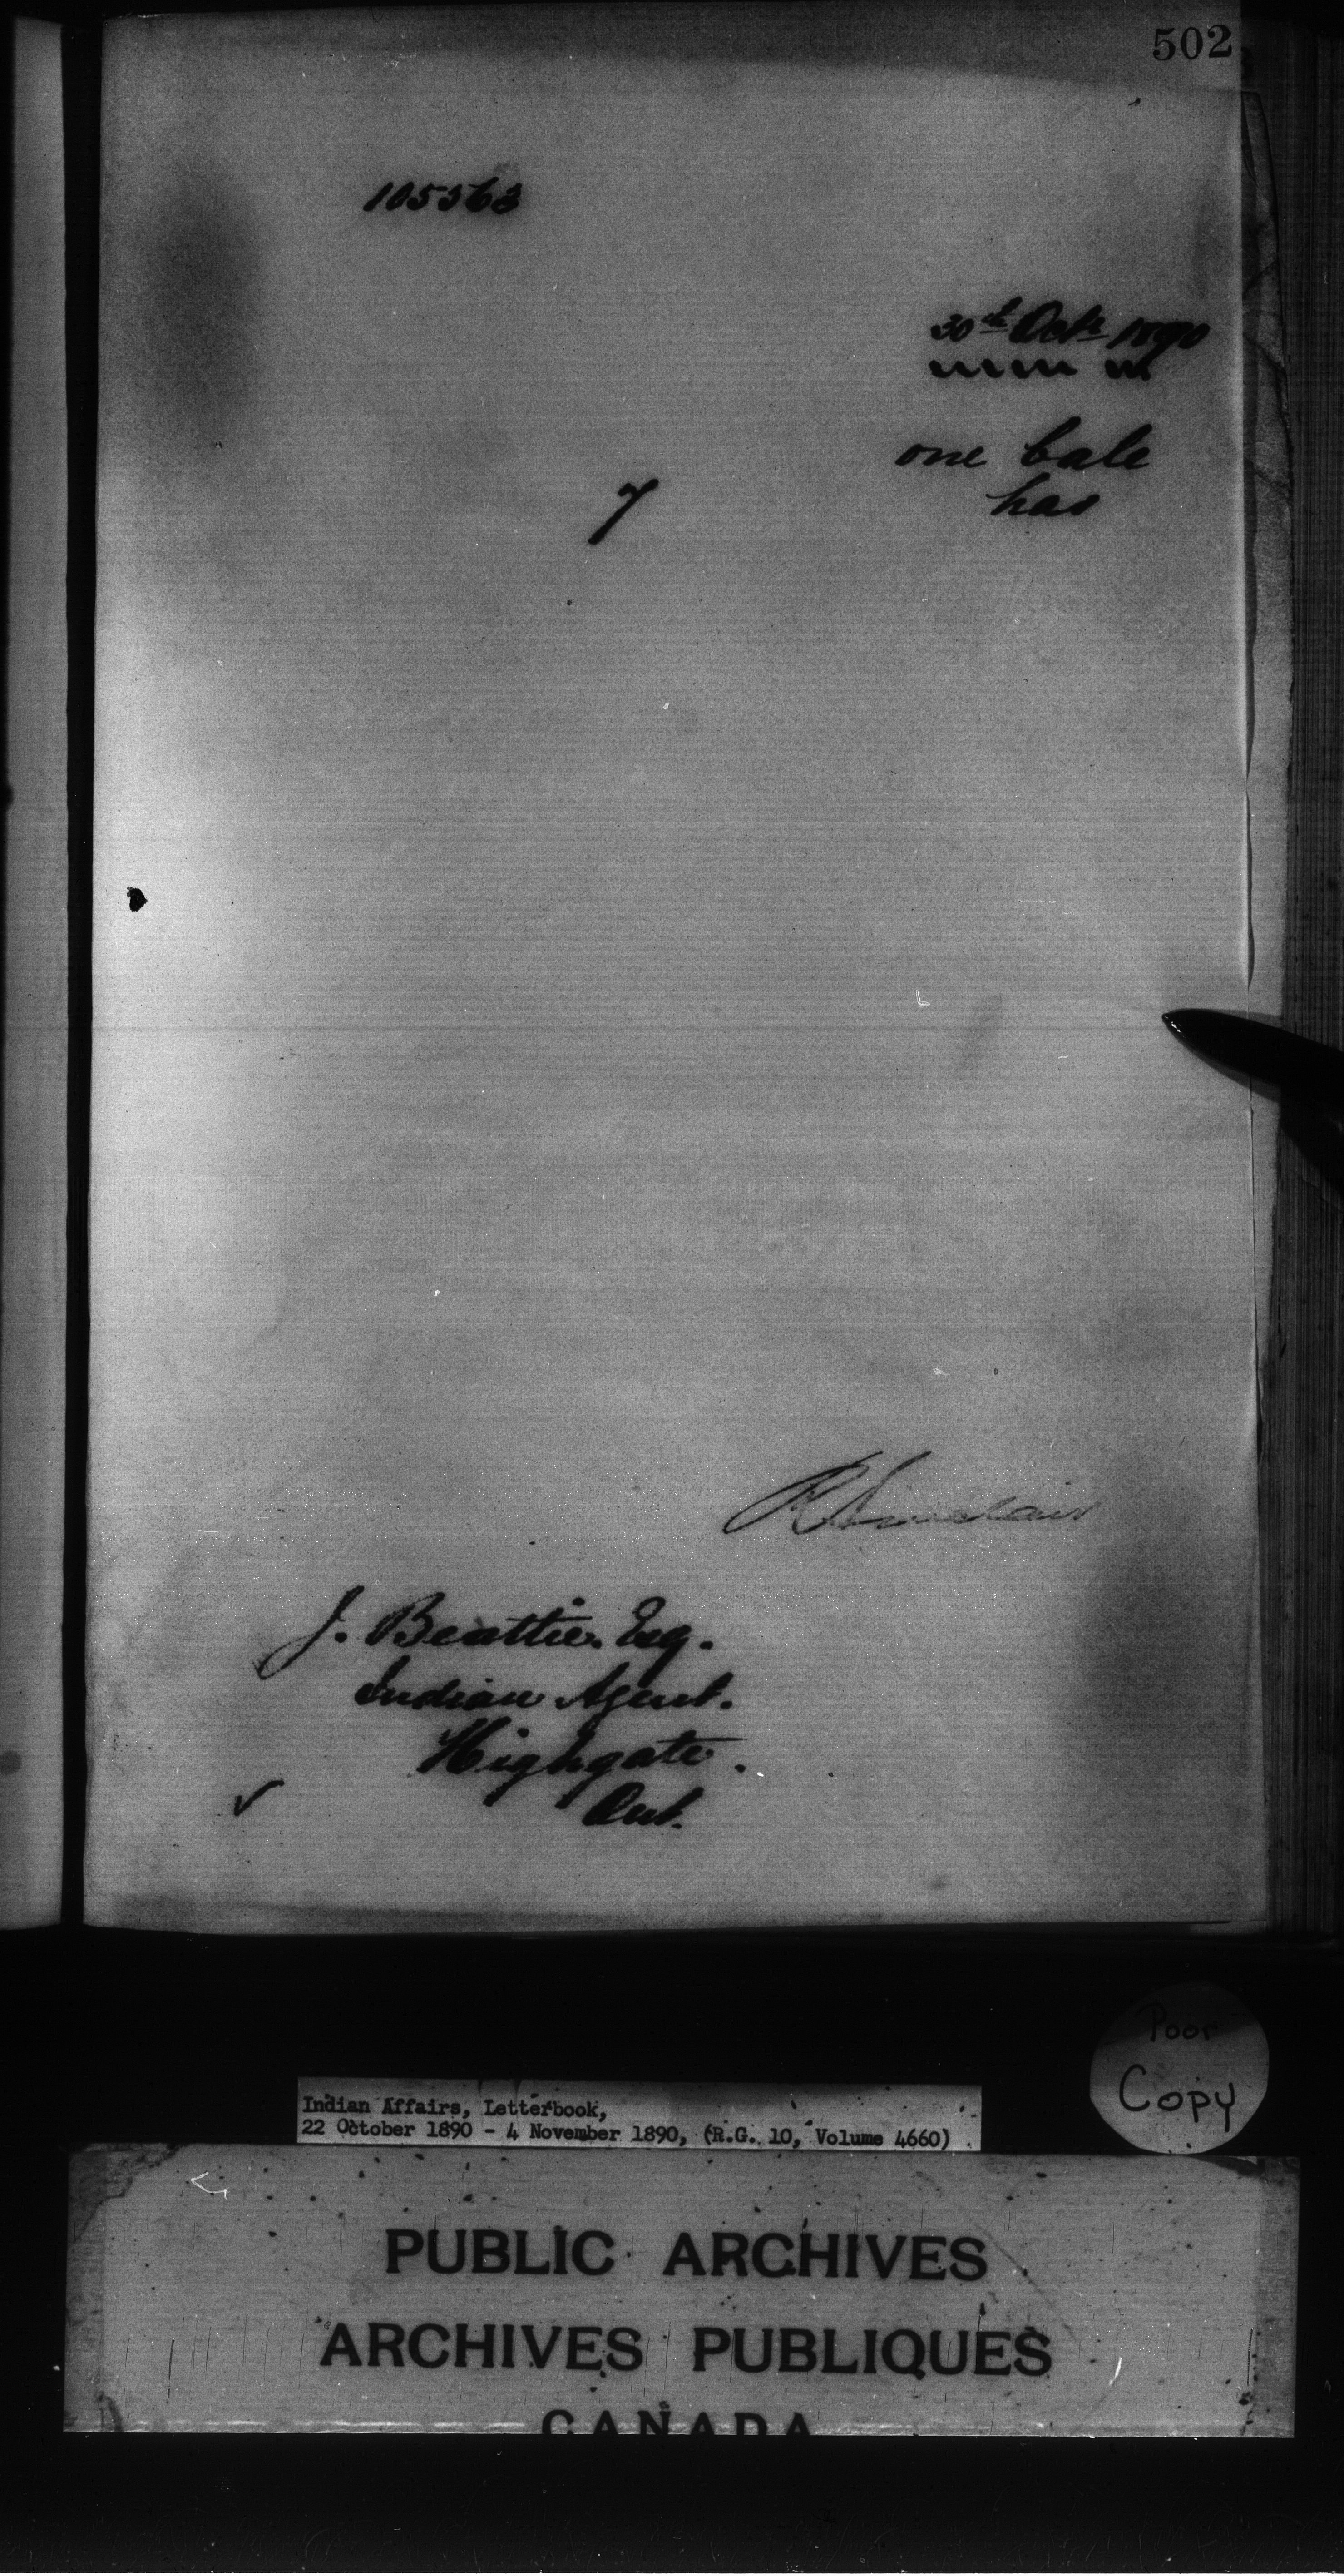 502
105363
30th Octr 1890
one bale
has
7
R Sinclair
J. Beattie. Esq.
Indian Agent.
Highgate.
Ont.
Poor
Copy
Indian Affairs, Letterbook,
22 October 1890 - 4 November 1890, (R.G. 10, Volume 4660)
PUBLIC ARCHIVES
ARCHIVES PUBLIQUES
CANADA